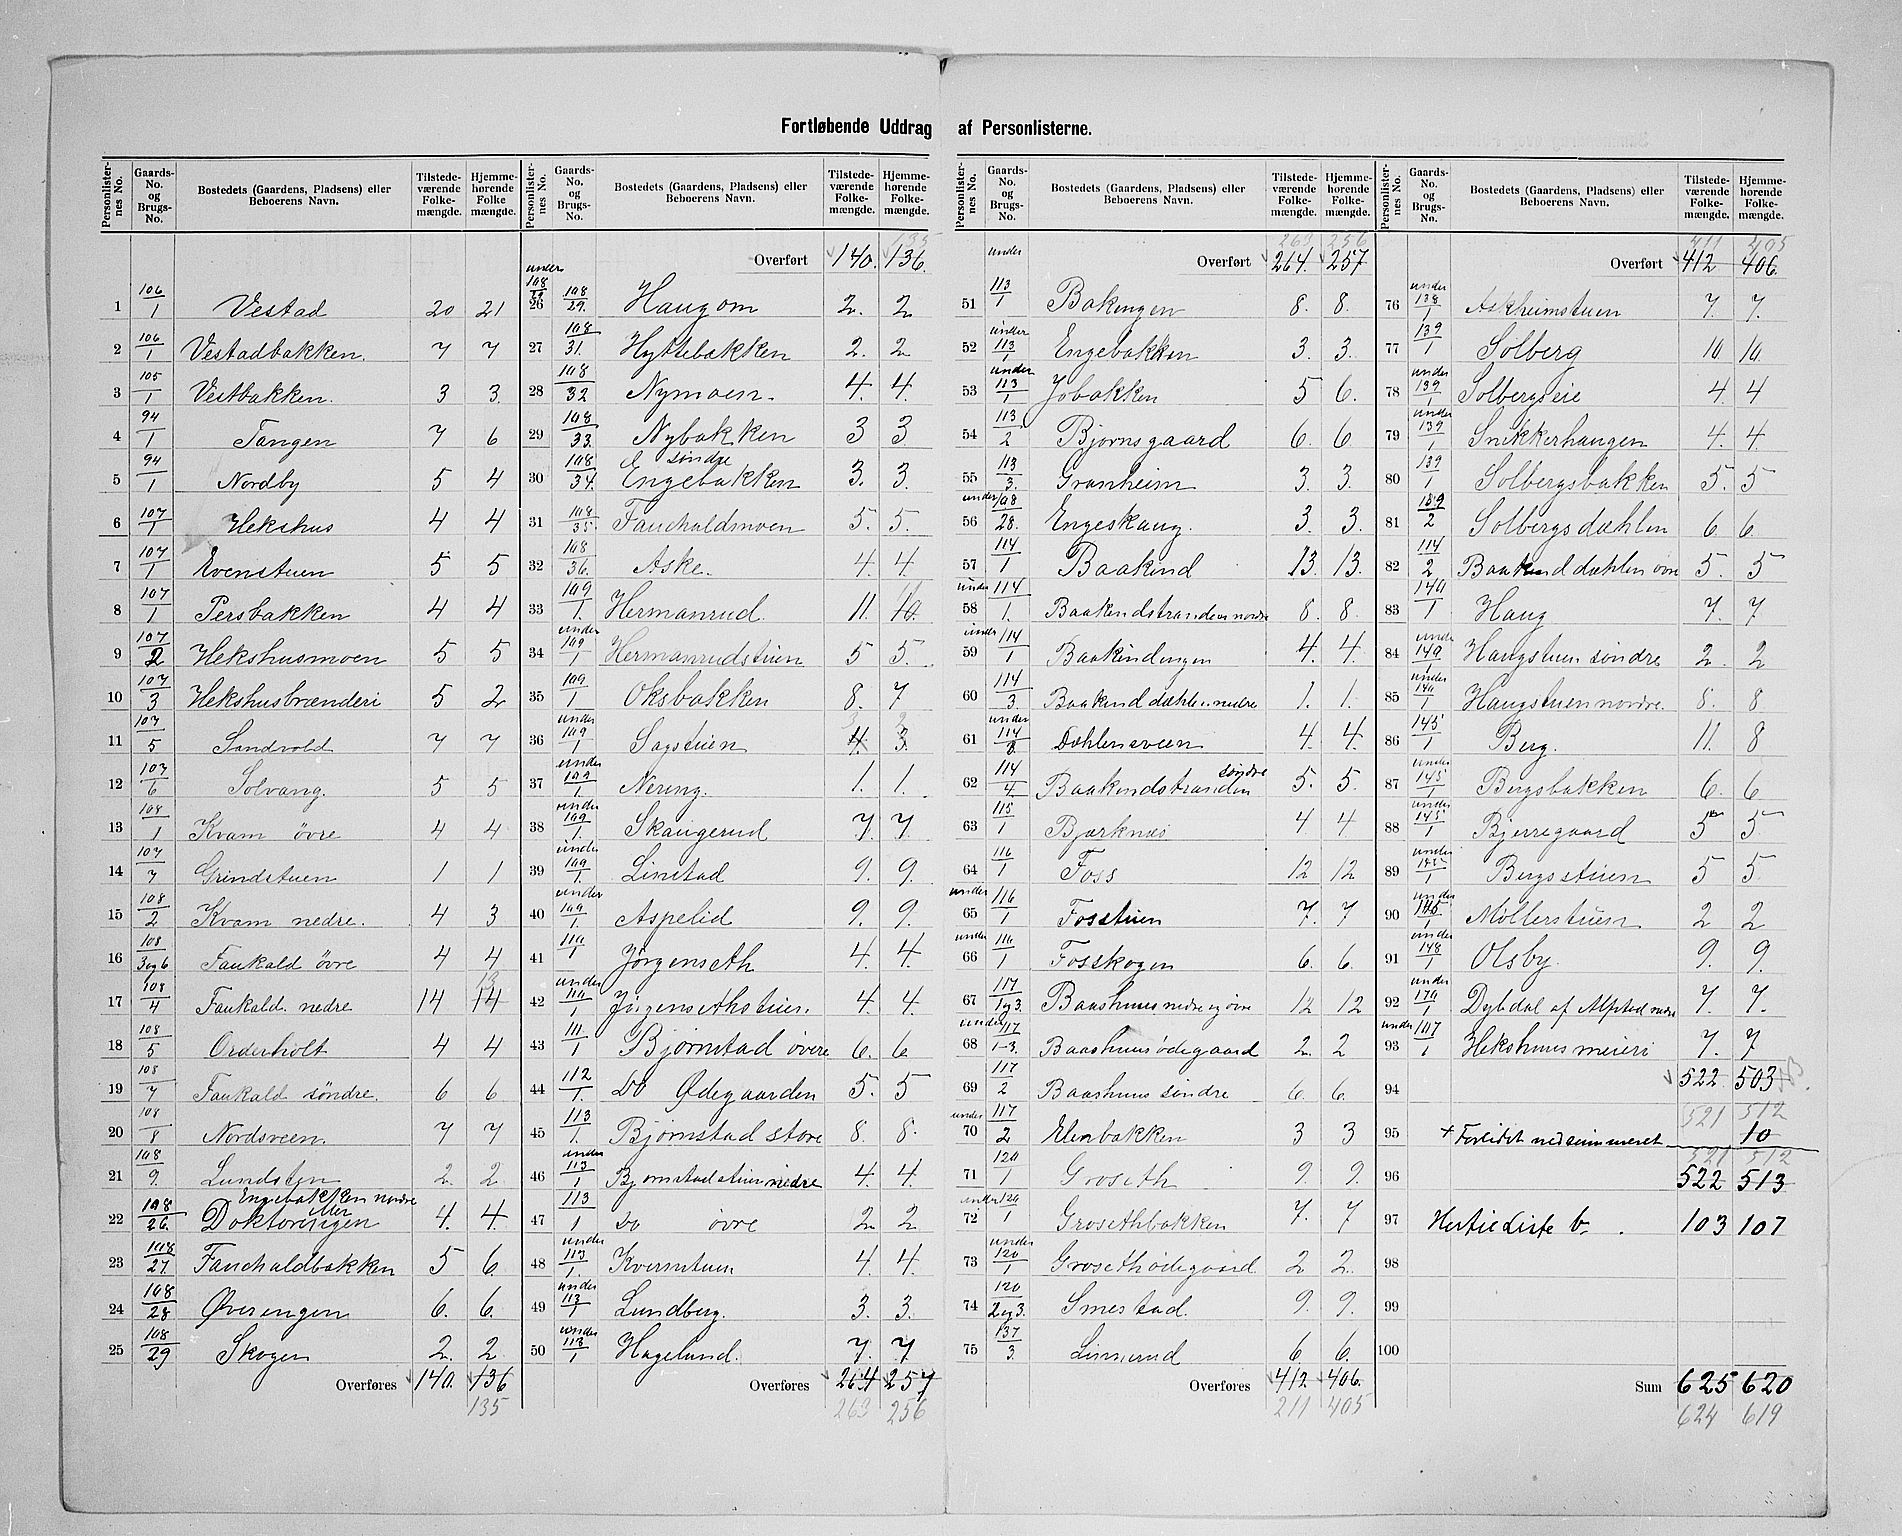 Fortløbende Uddrag af Personlisterne.
Personlisternes No. Gaards-No. og Brugs-No. Bostedets (Gaardens, Pladsens) eller Beboerens Navn. Tilstedeværende Folkemængde. Hjemmehørende Folkemængde.
1 106/1 Vestad 20 21
2 106/1 Vestadbakken. 7 7
3 105/1 Vestbakken. 3 3
4 94/1 Tangen 7 6
5 94/1 Nordby 5 4
6 107/1 Hekshus 4 4
7 107/1 Evenstuen 5 5
8 107/1 Persbakken 4 4
9 107/2 Hekshusmoen 5 5
10 107/3 Hekshusbrænderi 5 2
11 107/5 Sandvold 7 7
12 107/6 Solvang. 5 5
13 108/1 Kvam øvre 4 4
14 107/7 Grindstuen 1 1
15 108/2 Kvam nedre. 4 3
16 108/3og6 Faukald øvre 4 4
17 108/4 Faukald nedre 14 14 13
18 108/5 Orderholt 4 4
19 108/7 Faukald søndre. 6 6
20 108/8 Nordsveen. 7 7
21 108/9. Lundsten 2 2
22 108/26. Engebakken nordre eller Doktorengen 4. 4.
23 108/27. Fauchaldbakken 5 6.
24 108/28 Øverengen 6. 6.
25 108/29 Skogen 2. 2
Overføres 140. 136
135
Personlisternes No. Gaards-No. og Brugs-No. Bostedets (Gaardens, Pladsens) eller Beboerens Navn. Tilstedeværende Folkemængde. Hjemmehørende Folkemængde.
135
Overført 140. 136.
26 under 108/29 108/29. Haugom 2. 2
27 108/31. Hyttebakken 2. 2.
28 108/32 Nymoen. 4. 4.
29 108/33. Nybakken 3 3
30 108/34. Engebakken søndre 3. 3.
31 108/35. Fauchaldmoen 5. 5.
32 108/36. Aske. 4. 4.
33 109/1. Hermanrud. 11. 10.
34 under 109/1 Hermanrudstuen 5 5.
35 109/1 Oksbakken 8. 7
36 under 109/1 Sagstuen 4. 3. 3 2
37 under 109/1. Nering. 1. 1.
38 under 109/1. Skaugerud 7. 7
39 under 109/1. Linstad 9. 9.
40 under 109/1. Aspelid 9. 9.
41 110/1 Jørgenseth 4. 4.
42 under 110/1 Jørgensethstuen. 4. 4.
43 111/1 Bjørnstad øvre 6. 6.
44 112/1. Do Ødegaarden 5. 5
45 113/1. Bjørnstad store 8. 8.
46 under 113/1 Bjørnstadstuen nedre 4. 4.
47 113/1 Do øvre 2 2
48 under 113/1. Kvernstuen 4. 4.
49 under 113/1 Lundberg. 3. 3.
50 under 113/1 Hagelund. 7. 7
Overføres 264 257
263 256
Personlisternes No. Gaards-No. og Brugs-No. Bostedets (Gaardens, Pladsens) eller Beboerens Navn. Tilstedeværende Folkemængde. Hjemmehørende Folkemængde.
263 256
Overført 264. 257
51 under 113/1 Bakengen 8. 8.
52 under 113/1 Engebakken 3. 3.
53 under 113/1 Jobakken 5 6.
54 113/2 Bjørnsgaard 6. 6
55 113/3. Granheim 3 3.
56 under 108/28. Engeskaug. 3. 3.
57 114/1 Baakind 13. 13.
58 under 114/1. Baakindstranden nordre 8. 8.
59 under 114/1 Baakindengen 4. 4.
60 114/3. Baakinddæhlen nedre 1. 1.
61 under 114/3 Dæhlensveen 4. 4.
62 114/4. Baakindstranden søndre 5. 5.
63 115/1 Bjerknæs 4 4.
64 116/1 Foss 12 12
65 under 116/1 Fosstuen 7. 7
66 under 116/1 Fosskogen 6. 6.
67 117/1og3. Baashuus nedre og øvre 12 12
68 under 117/1-3. Baashuusødegaard 2. 2
69 117/2 Baashuus søndre 6. 6.
70 under 117/2 Elenbakken 3 3
71 120/1 Groseth 9. 9.
72 under 120/1 Grosethbakken 7. 7
73 under 120/1 Grosethødegaard 2 2.
74 120/2og3. Smestad. 9. 9.
75 137/3. Linnerud 6 6.
Overføres 412. 406.
211 405
Personlisternes No. Gaards-No. og Brugs-No. Bostedets (Gaardens, Pladsens) eller Beboerens Navn. Tilstedeværende Folkemængde. Hjemmehørende Folkemængde.
411 405
Overført 412 406.
76 under 138/1 Askheimstuen 7. 7.
77 139/1 Solberg 10. 10.
78 under 139/1 Solbergseie 4. 4
79 under 139/1 Snikkerhaugen 4. 4
80 139/1 Solbergsbakken 5. 5
81 139/2 Solbergsdæhlen 6. 6.
82 114/2 Baakinddæhlen øvre 5. 5
83 140/1 Haug 7. 7
84 under 140/1 Haugstuen søndre 2. 2
85 under 140/1 Haugstuen nordre. 8. 8
86 145/1 Berg. 11. 8
87 under 145/1 Bergsbakken 6. 6
88 under 145/1 Bjerregaard 5 5
89 under 145/1 Bergsstuen 5 5
90 under 145/1 Møllerstuen 2 2
91 under 148/1 Olsby. 9. 9.
92 under 170/1 Dybdal af Alfstad nedre 7. 7.
93 under 107/1 Hekshuus meieri 7. 7
94 522 503
521 512
95 + Forleidet nedsummeret 10
521 512
96 522 513
97 Hertil Liste b. 103 107
98
99
100
Sum 625 620
624 619